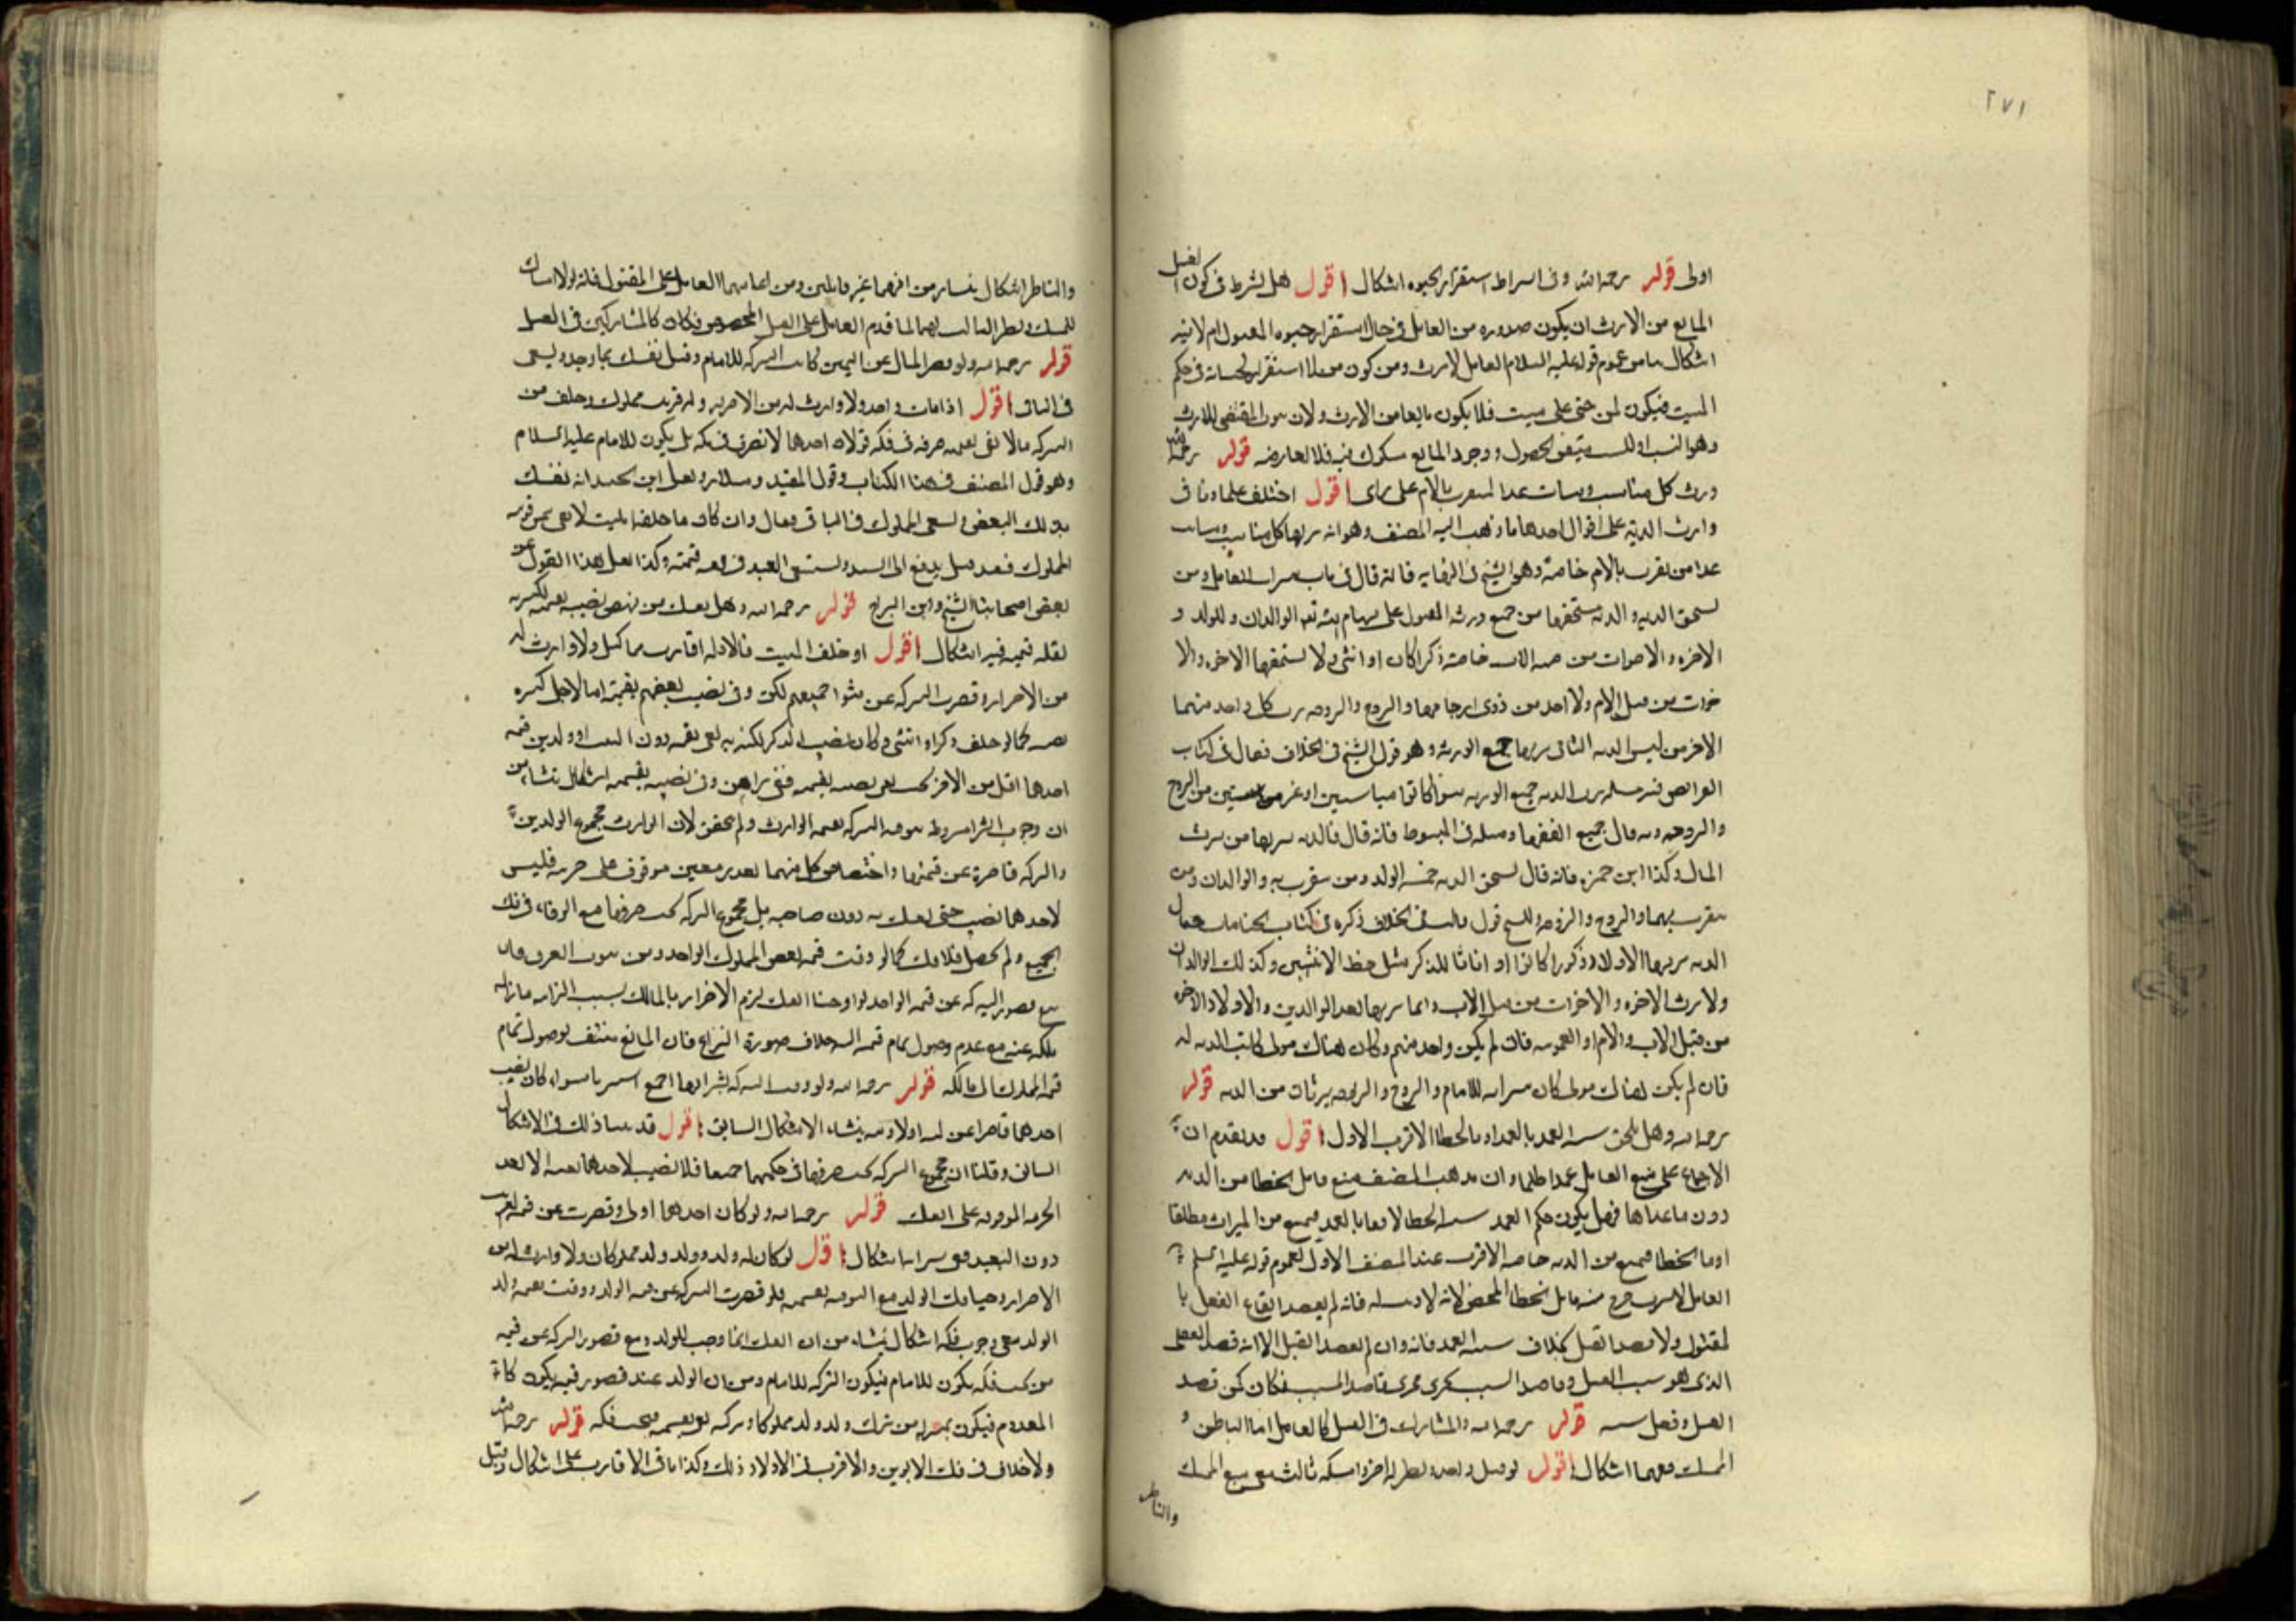 ٢٧١
اولى قوله رحمه الله وفى اشتراط استقرار الحيوه اشكال اقول هل يشترط فى كون القتل
المانع من الارث ان يكون صدوره من القاتل فى حال استقرار حيوه المقتول ام لا فيه
اشكال من عموم قوله عليه السلام القاتل لا يرث ومن كون من لا استقرار لحياته فى حكم
الميت فيكون كمن جنى على ميت فلا يكون مانعا من الارث ولان المقتضى للارث
وهو النسب او السبب متيقن الحصول ووجود المانع مشكوك فيه فلا يعارضه قوله رحمه الله
ورث كل مناسب ومسابب عدا المتقرب بالام على راى اقول اختلف علماونا فى
وارث الدية على اقوال احدها ما ذهب اليه المصنف وهو انه يرثها كل مناسب ومسابب
عدا من يتقرب بالام خاصة وهو الشيخ فى النهايه فانه قال فى باب ميراث القاتل ومن
يستحق الديه والديه يستحقها من جميع ورثه المقتول على سهام الله تعالى الوالدان والولد و
الاخوه والاخوات من جهه الاب خاصة ذكرا كان او انثى ولا يستحقها الاخوه والا
خوات من قبل الام ولا احد من ذوى ارحامها والزوج والزوجه يرث كل واحد منهما
الاخر من نفس الديه الثانى يرثها جميع الورثه وهو قول الشيخ فى الخلاف فقال فى كتاب
الفرائض فيه مسله يرث الديه جميع الورثه سوا كانوا مناسبين او غير مناسبين من الزوج
والزوجه وبه قال جميع الفقها ومثله فى المبسوط فانه قال فالديه يرثها من يرث
المال وكذا ابن حمزه فانه قال يستحق الديه خمسه الولد ومن يتقرب به والوالدان ومن
يتقرب بهما والزوج والزوجه وللشيخ قول ثالث فى الخلاف ذكره فى كتاب الجنايات فقال
الديه يرثها الاولاد ذكورا كانوا او اناثا للذكر مثل حظ الانثيين وكذلك الوالدان
ولا يرث الاخوه والاخوات من قبل الاب وانما يرثها بعد الوالدين والاولاد الاخوه
من قبل الاب والام او العمومه فان لم يكن واحد منهم وكان هناك مولى كانت الديه له
فان لم يكن هناك مولى كان ميراثه للامام والزوج والزوجه يرثان من الديه قوله
رحمه الله وهل يلحق شبيه العمد بالعمد او بالخطا الاقرب الاول اقول قد تقدم ان
الاجماع على منع القاتل عمدا ظلما وان مذهب المصنف منع قاتل الخطا من الديه
دون ماعداها فهل يكون حكم العمد شبيه الخطا لاحقا بالعمد فيمنع من الميراث مطلقا
او بالخطا فيمنع من الديه خاصه الاقرب عند المصنف الاول لعموم قوله عليه السلم
القاتل لا يرث خرج منه قاتل الخطا المحض فانه لم يقصد ايقاع الفعل با
لمقتول ولا قصد القتل بخلاف شبيه العمد فانه وان لم يقصد القتل الا انه قصد الفعل
الذى هو سبب القتل وقاصد السبب يجرى مجرى قاصد المسبب فكان كمن قصد
القتل وفعل سببه قوله رحمه الله والمشارك فى القتل كالقاتل اما الناظر و
الممسك ففيهما اشكال اقول لو قتل واحد ونظر له اخر وامسكه ثالث ففى منع الممسك
والناظر
والناظر اشكال ينشا من انهما غير قاتلين ومن اعانتهما القاتل على المقتول فانه لولا امساك
الممسك ونظر الناظر لهما لما قدم القاتل على القتل المخصوص فكان كالمشاركين فى القتل
قوله رحمه الله ولو قصر المال عن الثمن كانت التركه للامام وقيل يفك بما وجد ويسعى
فى الباقى اقول اذا مات واحد ولا وارث له من الاحرار وله قريب مملوك وخلف من
التركه ما لا يفى بقيمته صرفه فى فكه قولان احدهما لا تصرف فى فكه بل يكون للامام عليه السلام
وهو قول المصنف فى هذا الكتاب وقول المفيد وسلار ونقل ابن الجنيد انه يفك
بذلك البعض ويسعى المملوك فى الباقى فقال وان كان ما خلفه الميت لا يفى بثمن قريبه
المملوك فقد قيل يدفع الى السيد ويستسعى العبد فى بقيه قيمته وكذا نقل هذا القول عن
بعض اصحابنا الشيخ وابن البراج قوله رحمه الله وهل يفك من ينهض نصيبه بقيمته لكثرته
لقله قيمته فيه اشكال اقول لو خلف الميت مالا وله اقارب مماليك ولا وارث له
من الاحرار وقصرت التركه عن جميعهم لكن وفى نصيب بعضهم بقيمته اما لاجل كثره
نصيبه كما لو خلف ذكرا وانثى وكان نصيب الذكر لكثرته يفى بقيمته دون البنت او ولدين قيمه
احدهما اقل من الاخر بحيث يفى نصيبه بقيمته اشكال ينشا من
ان وجوب الشرا مشروط بوفا التركه بقيمه الوارث ولم يتحقق لان الوارث مجموع الولدين
والتركه قاصرة عن قيمتهما واختصاص كل منهما بقدر معين موقوف على حريته فليس
لاحدهما نصيب حتى يفك به دون صاحبه بل مجموع التركه يجب صرفها مع الوفاء فى فك
الجميع ولم يحصل فلا فك كما لو وفت قيمه بعض المملوك الواحد ومن
قصور التركه عن قيمه الواحد لو اوجبنا الفك لزم الاضرار بالمالك بسبب الزامه بازاله
ملكه عنه مع عدم وصول تمام قيمه بخلاف صورة النزاع فان المانع منتف لوصول تمام
قيمه المملوك الى مالكه قوله رحمه الله ولو وفت التركه بشرائهما اجمع اشتريا سواء كان نصيب
احدهما قاصرا عن ثمنه اولا ومنه ينشاء الاشكال السابق اقول قد بينا ذلك فى الاشكال
السابق وقلنا ان مجموع التركه يجب صرفها فى فكهما جميعا فلا نصيب لاحدهما بعينه الا بعد
الحريه الموقوفه على الفك قوله رحمه الله ولو كان احدهما اولى وقصرت عن قيمه القريب
دون البعيد ففى شرائه اشكال اقول لو كان له ولد وولد ولد مملوكان ولا وارث له من
الاحرار وحينئذ يفك الولد مع الوفا بقيمته فلو قصرت التركه عن قيمه الولد ووفت بقيمه ولد
الولد ففى وجوب فكه اشكال ينشاء من ان الفك انما وجب للولد ومع قصور التركه عن قيمه
من يجب فكه يكون للامام فيكون التركه للامام ومن ان الولد عند قصور قيمته يكون كا
المعدوم فيكون بمنزله من ترك ولد ولد مملوكا وتركه تفى بقيمته فيجب فكه قوله رحمه الله
ولا خلاف فى فك الابوين والاقرب فى الاولاد ذلك وكذا باقى الاقارب على اشكال وقيل